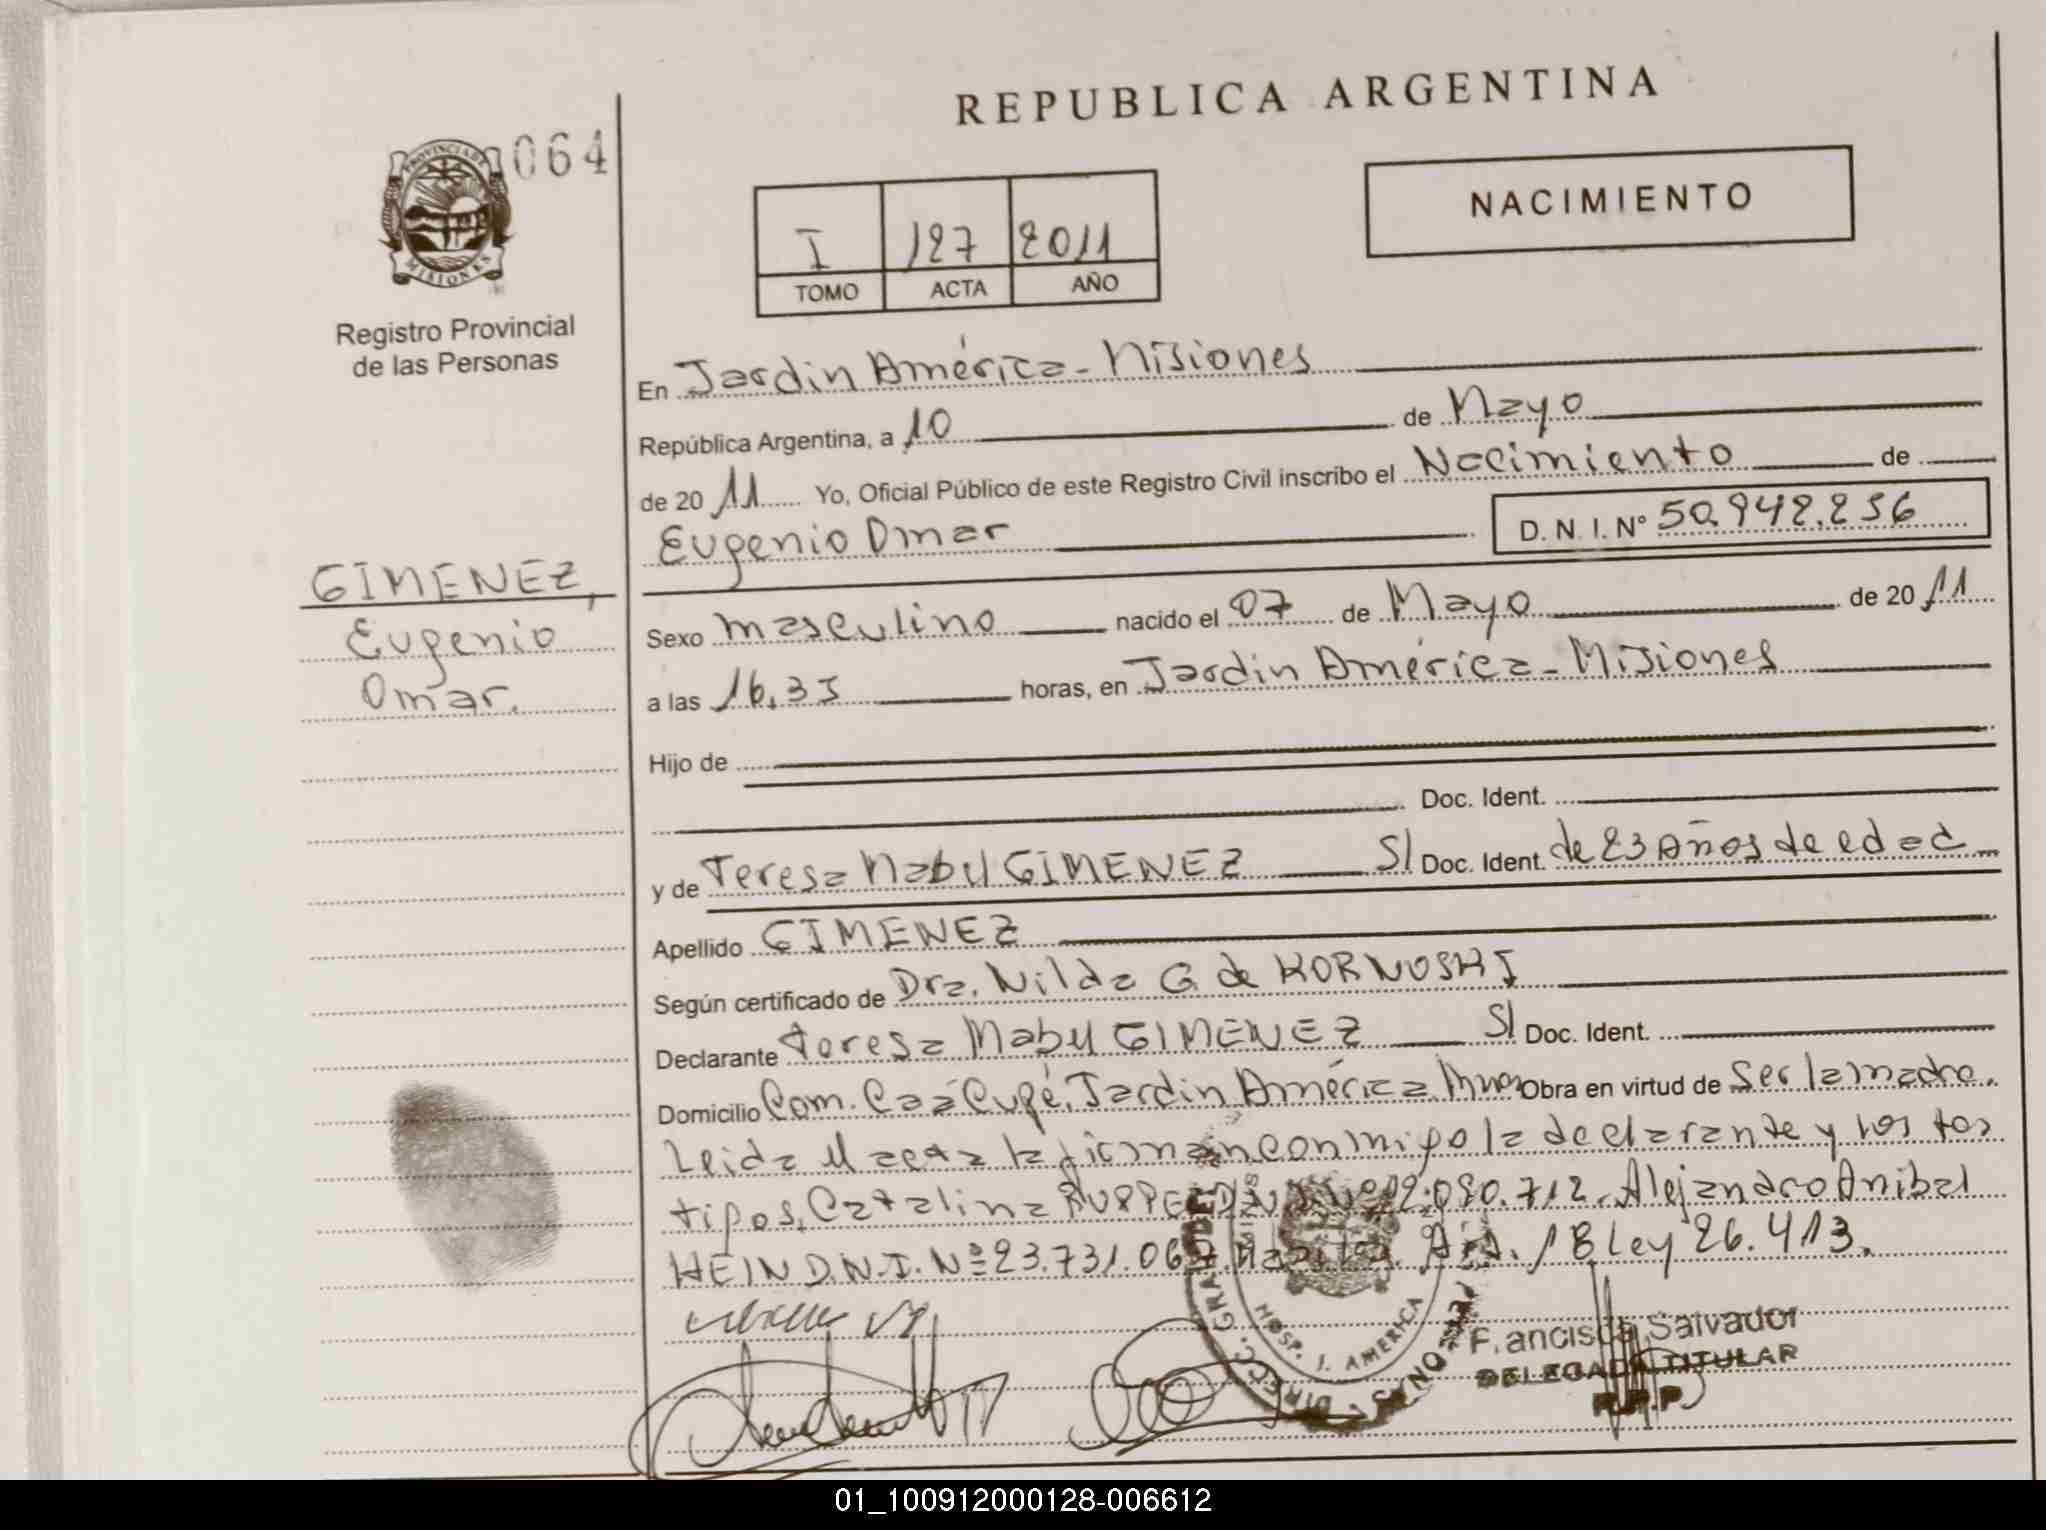 REPUBLICA ARGENTINA
PROVINCIA DE MISIONES
064
Registro Provincial
de las Personas
NACIMIENTO
I 127 2011
TOMO ACTA AÑO
En Jardin América - Misiones
República Argentina, a 10 de Mayo
de 20 11 Yo, Oficial Público de este Registro Civil inscribo el Nacimiento de
Eugenio Omar D. N. I. N° 50.942.256
GIMENEZ,
Eugenio
Omar.
Sexo masculino nacido el 07 de Mayo de 20 11
a las 16,35 horas, en Jardin América - Misiones
Hijo de
Doc. Ident.
y de Teresa Mabel GIMENEZ S/ Doc. Ident. de 23 Años de edad
Apellido GIMENEZ
Según certificado de Dra. Nilda G. de KORNOSKI
Declarante Teresa Mabel GIMENEZ S/ Doc. Ident.
Domicilio Com. Caá Cupé, Jardin América Mnes Obra en virtud de Ser la madre.
Leida el acta la firman conmigo la declarante y los tes
tigos, Catalina D.N.I. Nº 12.080.712. Alejandro Anibal
HEIN D.N.I. Nº 23.731.067. Art. 18 Ley 26.413.
HOSP. J. AMERICA
Francisca Salvador
DELEGADA TITULAR
R.P.P
01_100912000128-006612